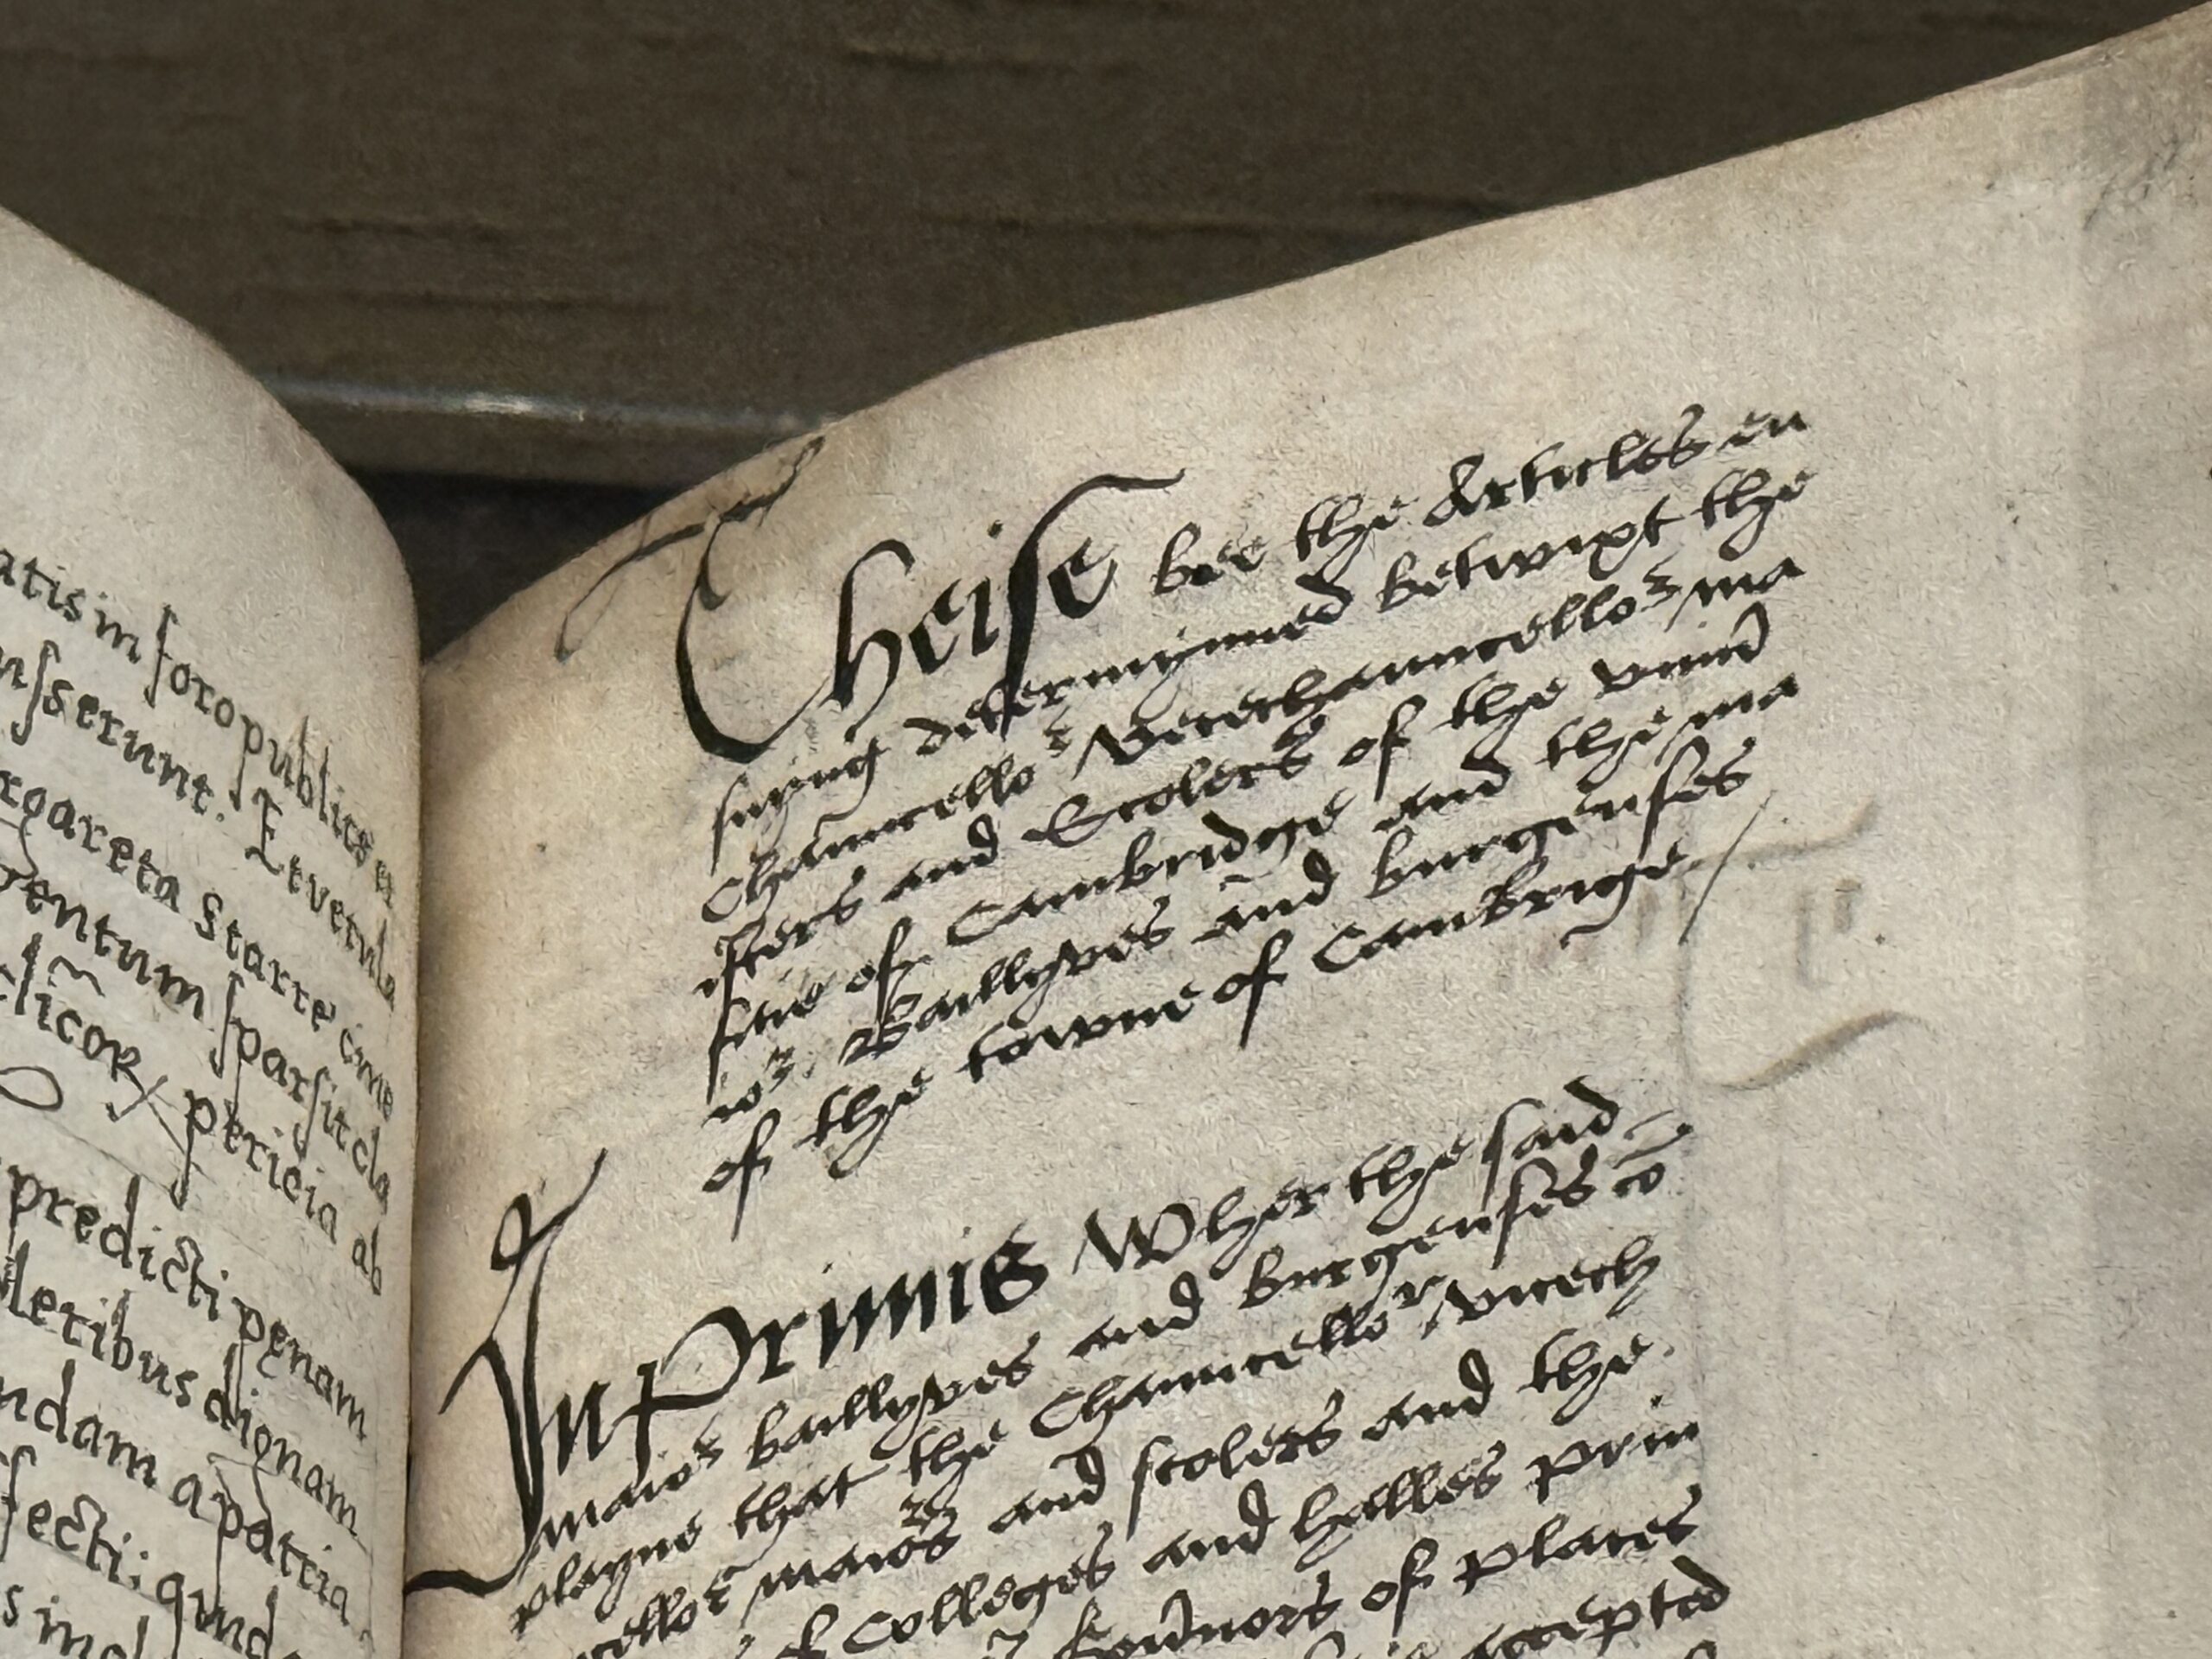 atis in foro publico et
nsserunt. Et vetula
rgareta Starre cme
gentum sparsit cla
clicor pericia ab
predicti penam
leribus dignam
ndam a patria
fecti: qund
s ind
Theise bee the Articles en
suyng determynned betwixt the
Chauncellor Vicechauncellor ma
isters and Scolers of the univ
sitie of Cambridge and the ma
ior Baillyves and burgenses
of the towne of Cambrige
In Primis Wher the said
maior baillyves and burgenses co
playne that the Chauncellor vicech
cellor maiors and scolers and the
of Colleges and halles prin
Gov'nors of places
accepted